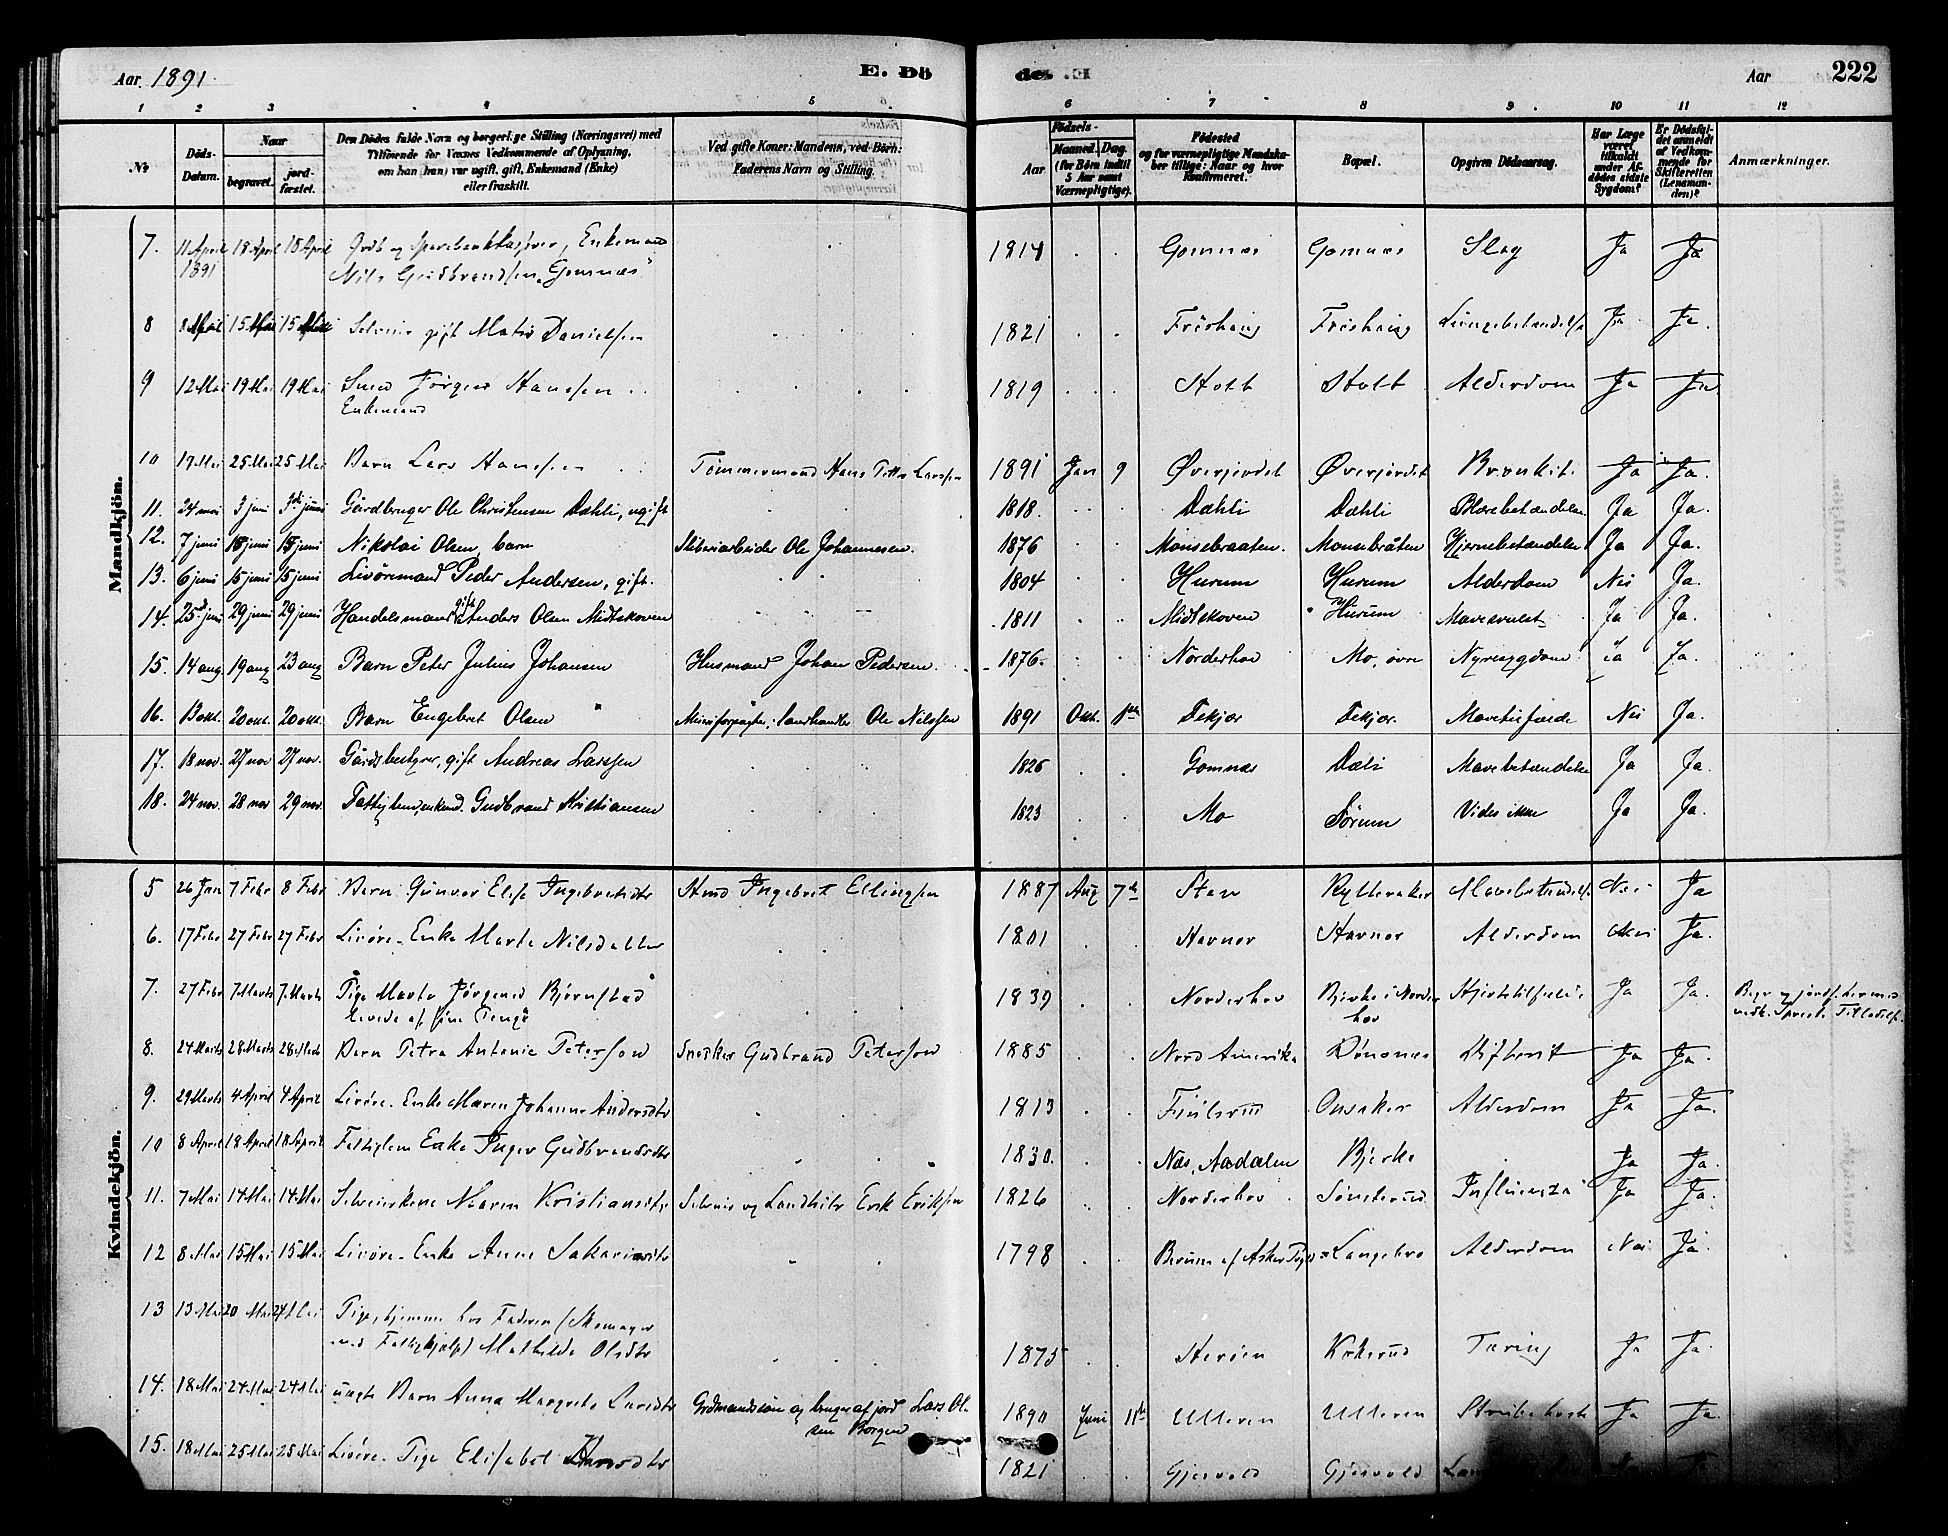 Aar 1891
E. Dö
de. E.
Aar
222
1 2 3 4 5 6 7 8 9 10 11 12
No
Döds-Datum.
Naar
begravet.
jordfæstet.
Den Dödes fulde Navn og borgerlige Stilling (Næringsvei) med Tilföiende for Vexnes Vedkommende af Oplysning, om han (hun) var ugift, gift, Enkemand (Enke) eller fraskilt.
Ved gifte Koner: Mandens, ved Börn: Faderens Navn og Stilling.
Födsels-
Aar
Maaned. Dag.
(for Börn indtil 5 Aar samt Værnepligtige).
Födested og for værnepligtige Mandskaber tillige: Naar og hvor Konfirmeret.
Bopæl.
Opgiven Dödsaarsag.
Har Læge været tilkaldt under Afdödes sidste Sygdom?
Er Dödsfaldet anmeldt af Vedkommende for Skifteretten (Lensmanden)?
Anmærkninger.
Mandkjön.
7. 11 April 1891 18 April 18 April Enkemand Nils Gudbrandsen Gomnæs 1814 Gomnæs Gomnæs Slag Ja Ja
8 15 Mai 15 Mai gift Mathis Danielsen 1821 Fröshaug Fröshaug Lungebetændelse Ja Ja.
9 12 Mai 19 Mai 19 Mai Smed Jörgen Hanssen Enkemand 1819 Holt Holt Alderdom Ja Ja
10 19 Mai 25 Mai 25 Mai Barn Lars Hanssen Tömmermand Hans Petter Larssen 1891 Jan 9 Øverjordet Øverjordet Bronkit. Ja Ja.
11. 24 mai 3 juni 3 juni Gårdbruger Ole Christensen Dæhli, ugift 1818. Dæhli Dæhli Blærebetændelse Ja Ja.
12. 7 juni 15 juni 15 juni Nikolai Olsen, barn Sliberiarbeider Ole Johannesen. 1876 Monsebraaten. Monsebråten Hjernebetændelse Ja Ja.
13. 6 juni 15 juni 15 juni Livöremand Peder Andersen, gift. 1804 Hurum Hurum Alderdom Nei Ja.
14. 25 juni 29 juni 29 juni Handelsmand gift Anders Olsen Midtskoven 1811 Midtskoven Hurum Mavesvulst Ja Ja.
15. 14 aug 19 aug 23 aug Barn Peter Julius Johansen Husmand Johan Pedersen. 1876. Norderhov Mo, övre Nyresygdom Ja Ja.
16. 13 okt. 20 okt. 20 okt. Barn Engebret Olsen landhandler Ole Nilssen 1891 Okt. 1ste Tekjær Tekjær. Mavetilfælde Nei Ja.
17. 18 nov. 27 nov 27 nov. Gårdsbestyrer, gift Andreas Larssen 1826 Gomnæs Dæli Mavebetændelse Ja Ja.
18. 24 nov. 28 nov 29 nov. Fattiglem, enkemd. Gudbrand Kristiansen 1823 Mo Sörum Vides ikke Ja Ja.
Kvindekjön.
5 26 Jan 7 Febr 8 Febr Barn Gunvor Elise Ingebretsdtr Ingebret Ellingsen 1887 Aug 7de Rytteraker Mavebetændelse Nei Ja
6. 17 Febr 27 Febr 27 Febr Livöre-Enke Marte Nilsdatter 1801 Havnor Havnor Alderdom Nei Ja.
7. 27 Febr 7 Marts 7 Marts Pige Marte Jörgensd Björnstad levede af sine Penge 1839 Norderhov Bjerke i Norderhov Hjertetilfælde Ja Ja.
8. 24 Marts 28 Marts 28 Marts Barn Petra Antonie Peterson Snedker Gudbrand Peterson 1885 Nord Amerika Rönsnes Difterit Ja Ja.
9. 29 Marts 4 April 4 April Livöre-Enke Maren Johanne Andersdtr 1813 Fjulsrud Onsaker Alderdom Ja Ja.
10 8 April 18 April 18 April Fattiglem Enke Inger Gudbrandsdtr 1830. Næs, Aadalen Bjerke Ja Ja.
11. 7 Mai 14 Mai 14 Mai Maren Kristiansdtr og Landhdlr Erik Eriksen 1826 Norderhov Sönsterud Influensa Ja Ja.
12 8 Mai 15 Mai 15 Mai Livöre-Enke Anne Sakariasdtr 1798 Berum af Asker Langebro Alderdom Nei Ja.
13 13 Mai 20 Mai 24 Mai Pige, hjemme hos Faderen (Skomager med Fattighjælp) Mathilde Olsdtr 1875 Heröen Kokerud Tæring Ja Ja.
14. 18 Mai 24 Mai 24 Mai uægte Barn Anna Margrete Larsdtr Grdmandssön og bruger af jord Lars Olsen Borgen 1890 Juni 11te Ulleren Ulleren Strubehoste Ja Ja.
15. 18 Mai 25 Mai 25 Mai Livöre-Pige Elisabet Hansdtr 1821 Gjesvold Gjesvold